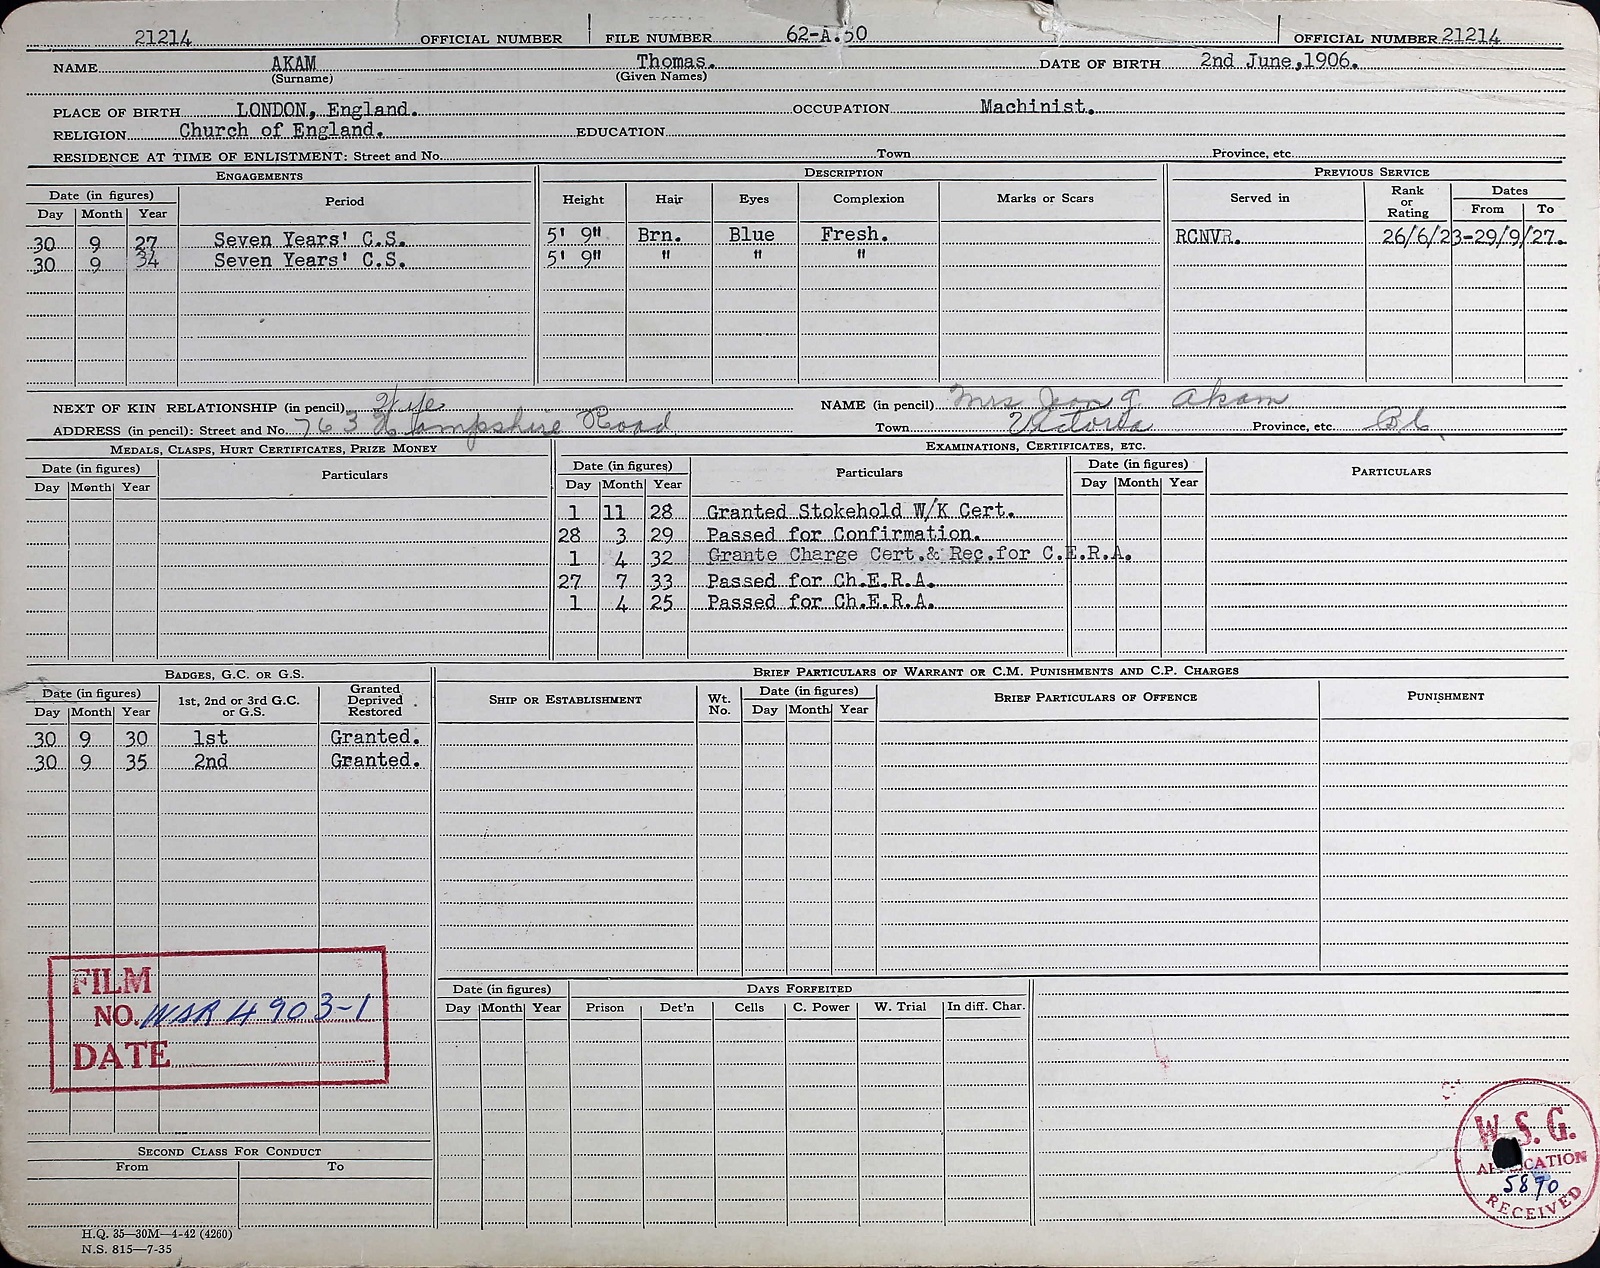 21214 OFFICIAL NUMBER FILE NUMBER 62-A.50 OFFICIAL NUMBER 21214
NAME AKAM Thomas. DATE OF BIRTH 2nd June,1906.
(Surname) (Given Names)
PLACE OF BIRTH LONDON, England. OCCUPATION Machinist.
RELIGION Church of England. EDUCATION
RESIDENCE AT TIME OF ENLISTMENT: Street and No. Town Province, etc.
ENGAGEMENTS DESCRIPTION PREVIOUS SERVICE
Date (in figures) Period Height Hair Eyes Complexion Marks or Scars Served in Rank or Rating Dates
Day Month Year From To
30 9 27 Seven Years' C.S. 5' 9" Brn. Blue Fresh. RCNVR. 26/6/23-29/9/27.
30 9 34 Seven Years' C.S. 5' 9" " " "
NEXT OF KIN RELATIONSHIP (in pencil) Wife NAME (in pencil) Mrs Jean G. Akam
ADDRESS (in pencil): Street and No. 763 Hampshire Road Town Victoria Province, etc. BC
MEDALS, CLASPS, HURT CERTIFICATES, PRIZE MONEY EXAMINATIONS, CERTIFICATES, ETC.
Date (in figures) Particulars Date (in figures) Particulars Date (in figures) PARTICULARS
Day Month Year Day Month Year Day Month Year
1 11 28 Granted Stokehold W/K Cert.
28 3 29 Passed for Confirmation.
1 4 32 Grante Charge Cert.& Rec.for C.E.R.A.
27 7 33 Passed for Ch.E.R.A.
1 4 25 Passed for Ch.E.R.A.
BADGES, G.C. OR G.S. BRIEF PARTICULARS OF WARRANT OR C.M. PUNISHMENTS AND C.P. CHARGES
Date (in figures) 1st, 2nd or 3rd G.C. or G.S. Granted Deprived Restored SHIP OR ESTABLISHMENT Wt. No. Date (in figures) BRIEF PARTICULARS OF OFFENCE PUNISHMENT
Day Month Year Day Month Year
30 9 30 1st Granted.
30 9 35 2nd Granted.
FILM
NO. WSR 4903-1
DATE
Date (in figures) DAYS FORFEITED
Day Month Year Prison Det'n Cells C. Power W. Trial In diff. Char.
W.S.G.
APPLICATION
5870
RECEIVED
SECOND CLASS FOR CONDUCT
From To
H.Q. 35—30M—4-42 (4260)
N.S. 815—7-35